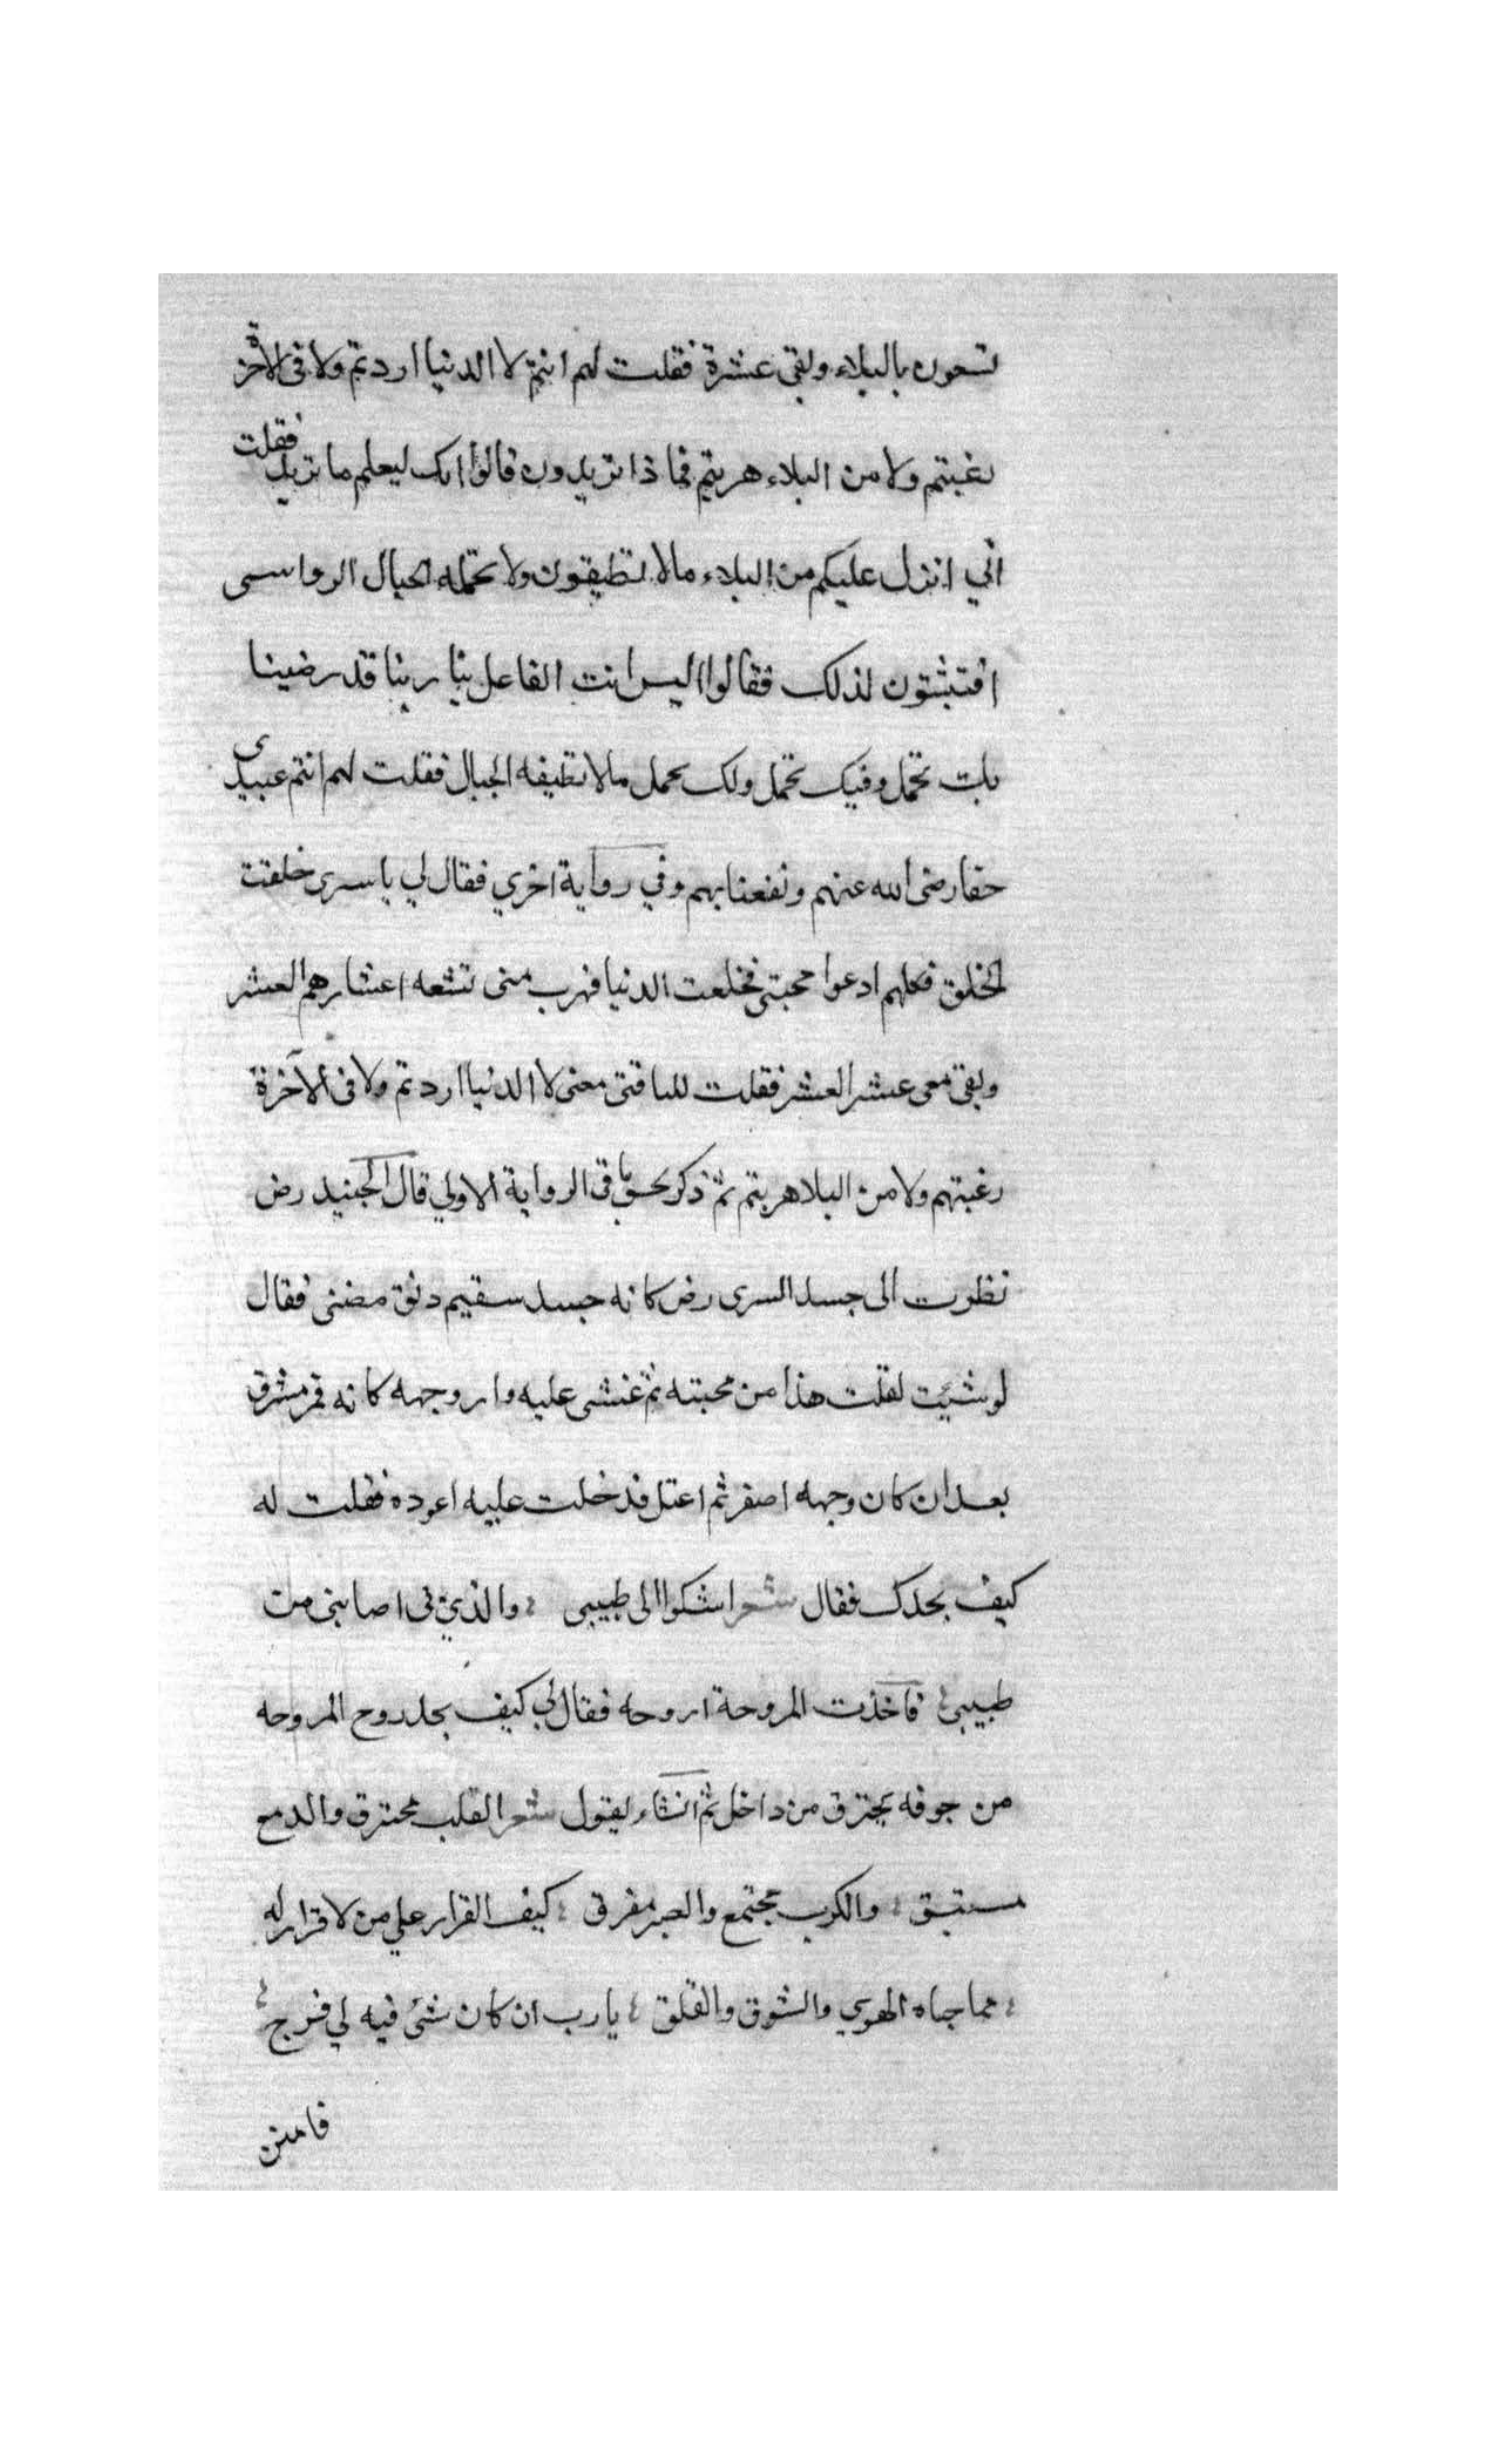 تسعون بالبلاء وبقى عشرة فقلت لهم انتم لا الدنيا اردتم ولا فى الآخرة
رغبتم ولا من البلاء هربتم فما ذا تريدون قالوا انك ليعلم ما تريد فقلت
انى انزل عليكم من البلاء مالا تطيقون ولا تحمله الجبال الرواسى
افتثبتون لذلك فقالوا اليس انت الفاعل بنا ربنا قد رضينا
بك تحمل وفيك تحمل ولك تحمل مالا تطيقه الجبال فقلت لهم انتم عبيدى
حقا رضى الله عنهم ونفعنا بهم وفي رواية اخري فقال لي يا سرى خلقت
الخلق فكلهم ادعوا محبتى فخلقت الدنيا فهرب منى تسعه اعشارهم العشر
وبقى معى عشر العشر فقلت للباقين معى لا الدنيا اردتم ولا فى الآخرة
رغبتهم ولا من البلا هربتم ثم ذكر نحو ما فى الرواية الاولي قال الجنيد رض
نظرت الى جسد السرى رض كانه جسد سقيم دنق مضنى فقال
لو شئيت لقلت هذا من محبته ثم غشى عليه وار وجهه كانه قمر مشرق
بعد ان كان وجهه اصفر ثم اعتل فدخلت عليه اعوده فقلت له
كيف تجدك فقال شعر اشكوا الى طبيبى ؛ والذي فى اصابنى من
طبيبى ؛ فاخذت المروحة اروحه فقال لي كيف يجد روح المروحه
من جوفه يحترق من داخل ثم انشاء يقول شعر القلب محترق والدمع
مستبق ؛ والكرب مجتمع والصبر مفرق ؛ كيف القرار علي من لا قرار له
؛ مما جناه الهوي والشوق والقلق ؛ يا رب ان كان شئ فيه لي فرج ؛
فامنن